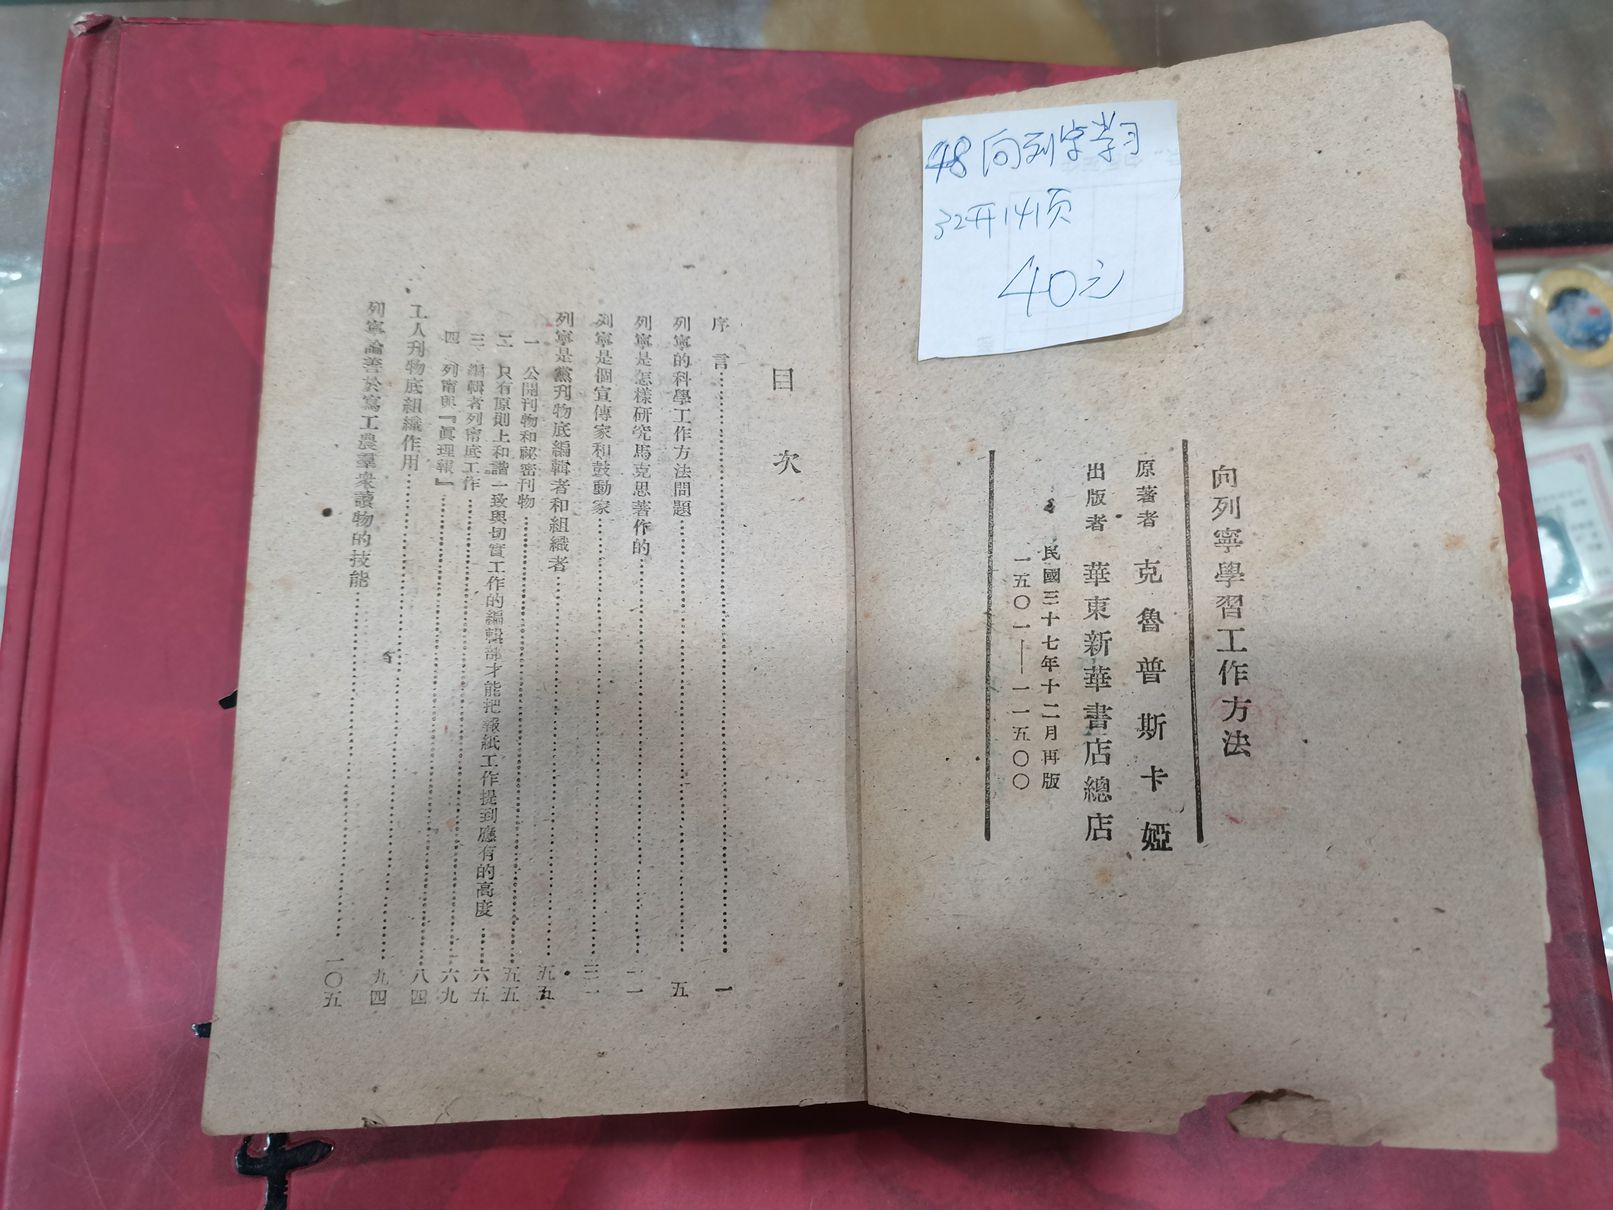 48向列宁学习
32开141页
40元
向列寧學習工作方法
原著者 克魯普斯卡婭
出版者 華東新華書店總店
民國三十七年十二月再版
一五〇一——一一五〇〇
目次
序言……一
列寧的科學工作方法問題……五
列寧是怎樣研究馬克思著作的……一一
列寧是個宣傳家和鼓動家……三一
列寧是黨刊物底編輯者和組織者……五五
一 公開刊物和秘密刊物……五五
二 只有原則上和諧一致與切實工作的編輯部才能把報紙工作提到應有的高度……六五
三 編輯者列甯底工作……六九
四 列甯與『眞理報』……八四
工人刊物底組織作用……九四
列寧論善於寫工農羣衆讀物的技能……一〇五